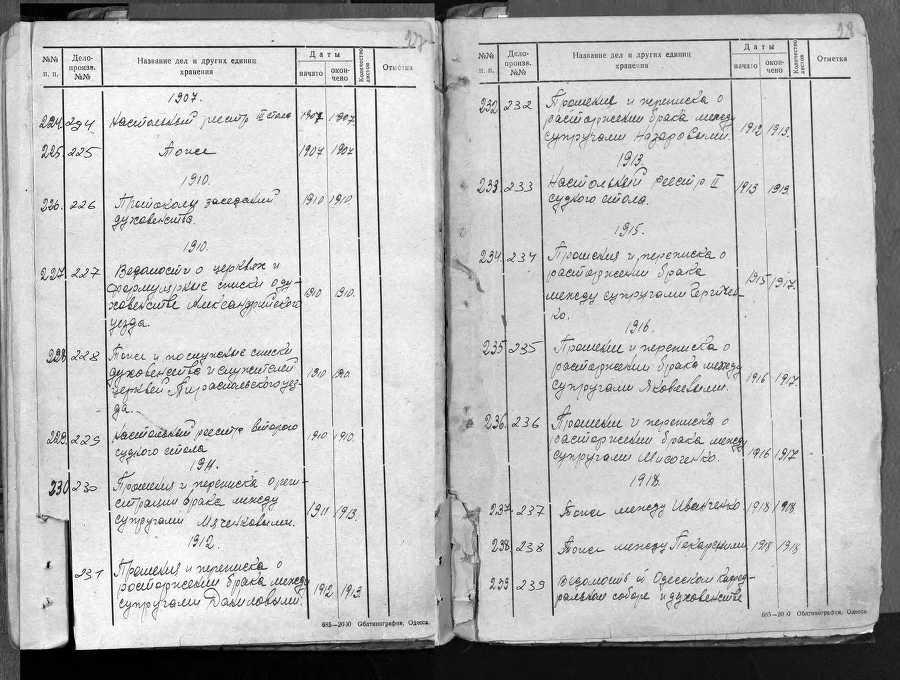 №№ п. п. Делопроизв. №№ Название дел и других единиц хранения Даты начато окончено Количество листов Отметка
1907.
224. 224 Настольный реестр III стола 1907 1907.
225. 225 Тоже 1907 1907
1910.
226. 226 Протоколы заседаний 1910 1910
духовенства.
1910.
227. 227 Ведомости о церквях и
формулярные списки о ду-
ховенстве Александрийского 1910 1910.
уезда.
228 228 Тоже и послужные списки
духовенства и служителей
церквей Тираспольского уез- 1910 1910.
да.
229. 229 Настольный реестр второго 1910 1910.
судного стола
1911.
230 230 Прошения и переписка о реги-
страции брака между
супругами 1911 1913.
1912.
231 Прошения и переписка о
расторжении брака между
супругами Даниловыми. 1912 1913
685—20Ю Облтипография, Одесса.
28
№№ п. п. Делопроизв. №№ Название дел и других единиц хранения Даты начато окончено Количество листов Отметка
232 232 Прошения и переписка о
расторжении брака между
супругами Назаровыми. 1912 1913.
1913.
233. 233 Настольный реестр II 1913 1913.
судного стола.
1915.
234. 234 Прошения и переписка о
расторжении брака 1915 1917.
между супругами
ко.
1916.
235 235 Прошение и переписка о
расторжении брака между
супругами Яковлевыми. 1916 1917
236. 236 Прошение и переписка о
расторжении брака между
супругами Мисюченко. 1916 1917
1918.
237. 237 Тоже между Иванченко 1918 1918
238. 238 Тоже между Пекарскими 1918 1918
239 239 Ведомость об Одесском кафед-
ральном соборе и духовенстве
685—20Ю Облтипография, Одесса.